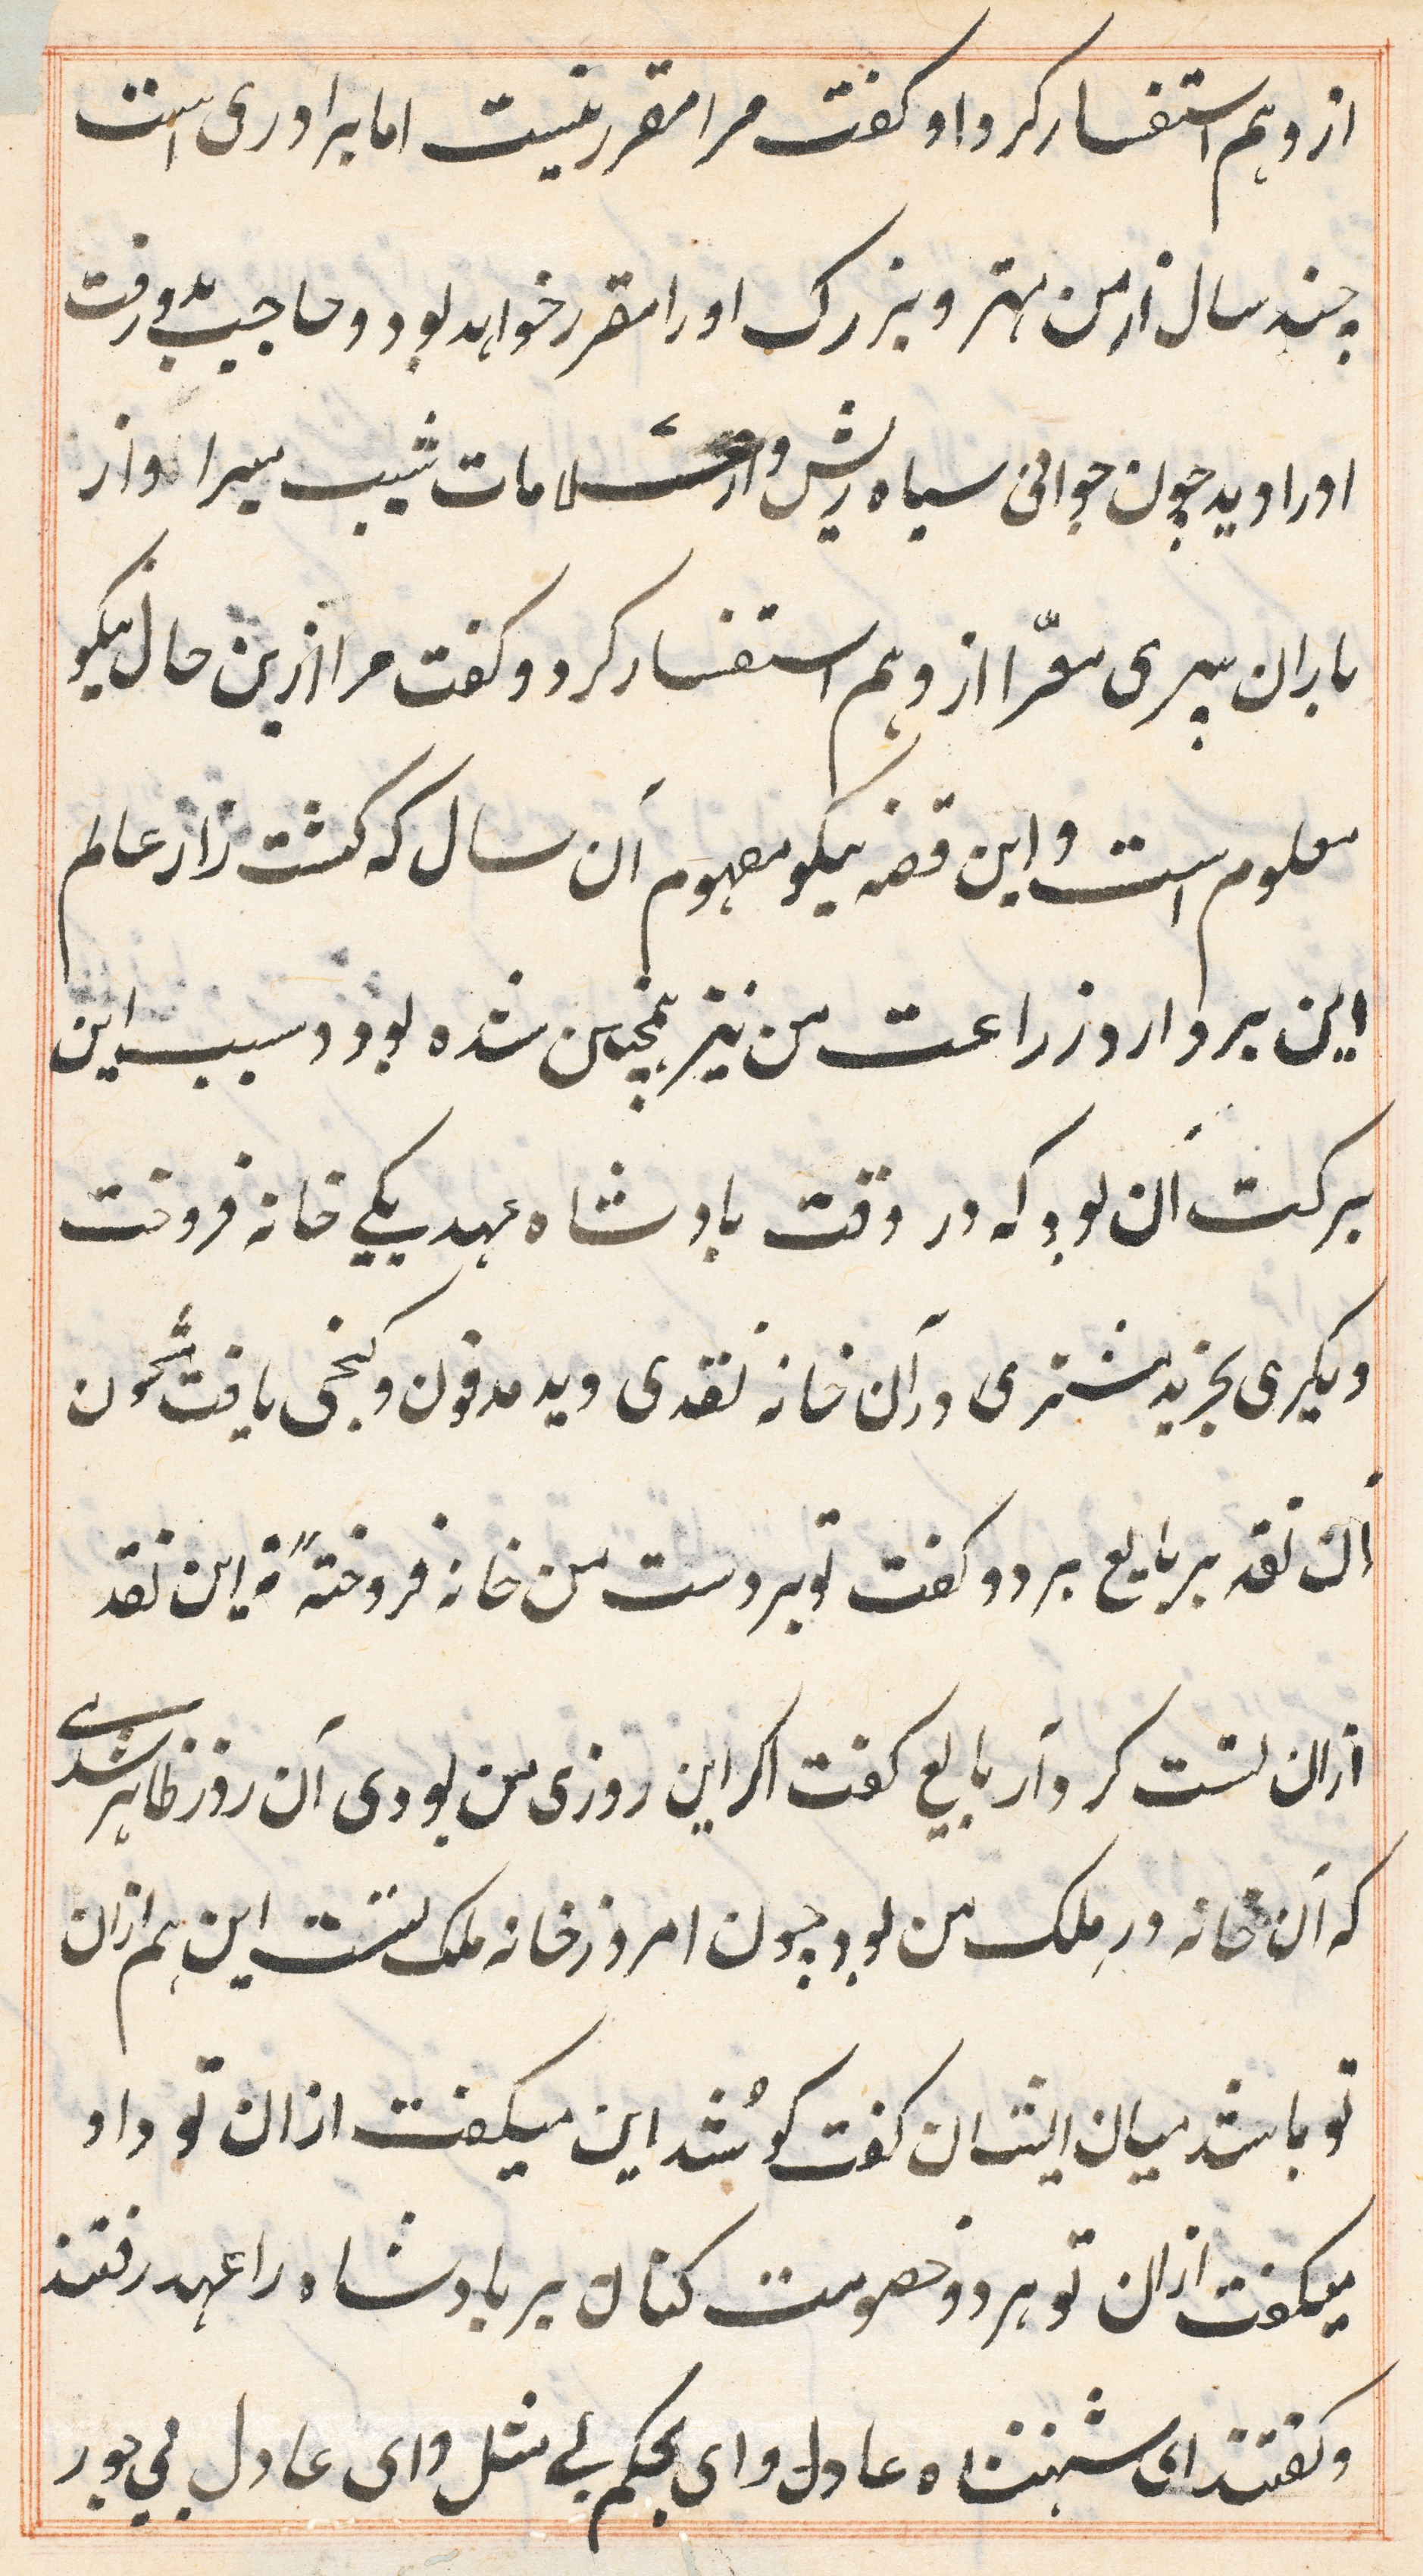 ازو هم استفسار کرد او کفت مرا مقرر نیست اما برادری است
چند سال از من مهتر و بزرک او را مقرر خواهد بود و حاجب بدو رفت
او را دید چون جوانی سیاه ریش و از علامات شیب مبرا و از
باران پیری معرّا ازو هم استفسار کرد و کفت مرا ازین حال نیکو
معلوم است و این قصه نیکو مفهوم آن سال که کشت زار عالم
این بر دارد زراعت من نیز همچنین شده بود و سبب این
برکت آن بود که در وقت بادشاه عهد یکے خانه فروخت
دیکری بخرید مشتری در آن خانه نقدی دید مدفون و کنجی یافت مشحون
آن نقد بر بایع برد و کفت تو بر دست من خانه فروختهٔ نه این نقد
ازان تست کرد آر بایع کفت اکر این روزی من بودی آن روز ظاهر شدے
که آن خانه در مِلک من بود چون امروز خانه ملک تست این هم ازان
تو باشد میان ایشان کفت کو شُد این میکفت ازان تو و او
میکفت ازان تو هر دو خصومت کنان بر بادشاه را عهد رفتند
و کفتند ای شهنشاه عادل و ای بحکم بے مثل و ای عادل بی جور